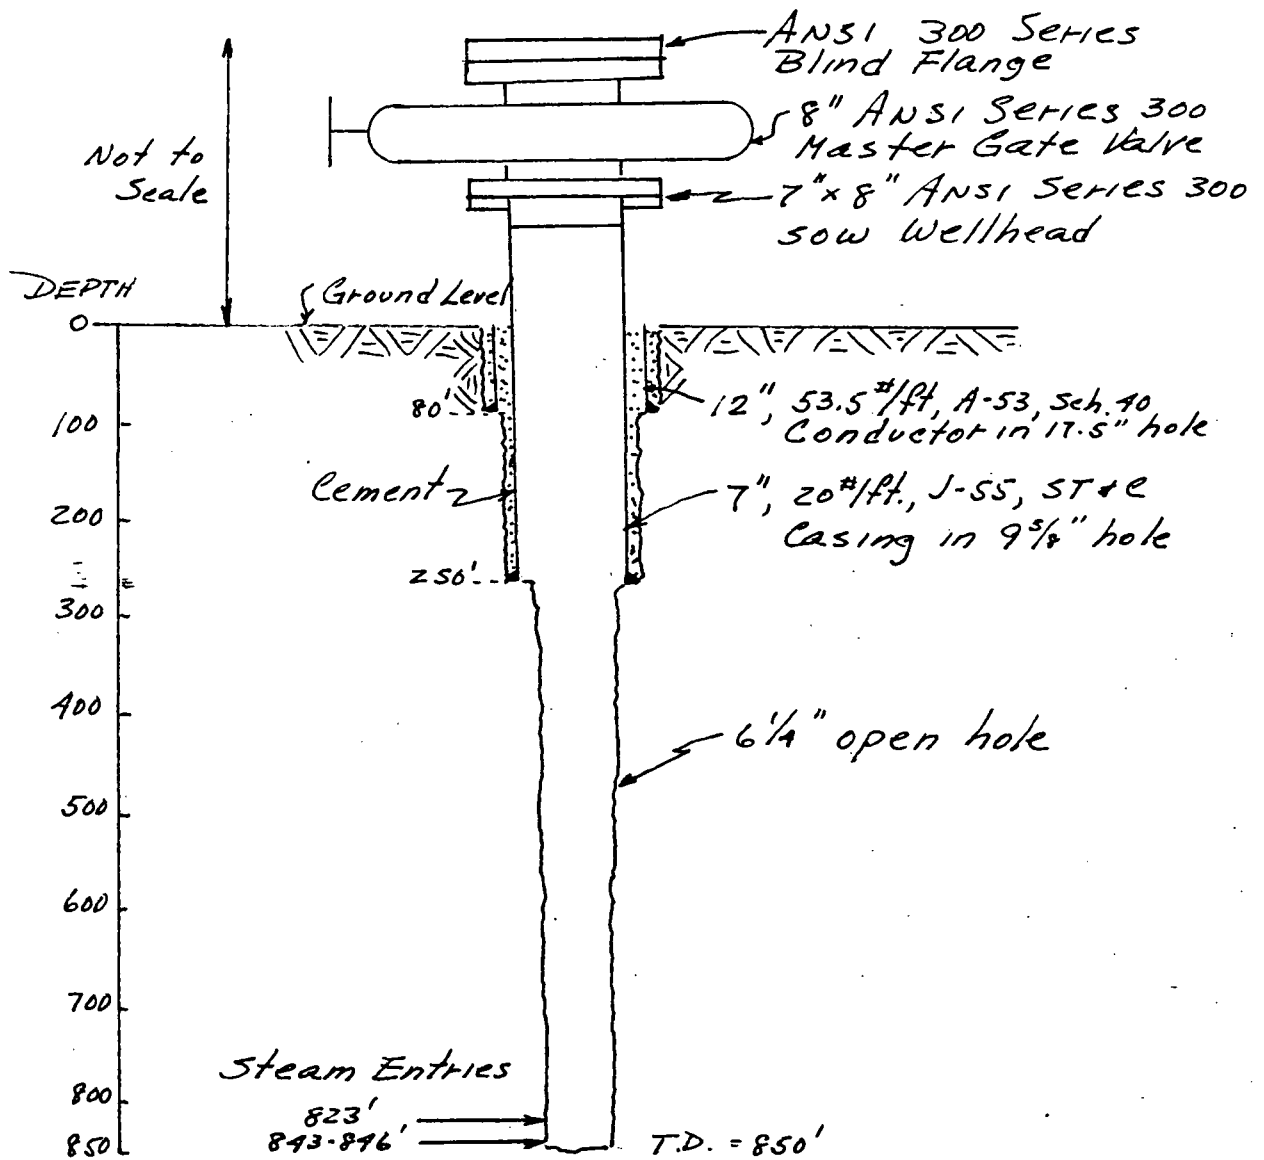 ANSI 300 Series
Blind Flange
8" ANSI Series 300
Master Gate Valve
7" x 8" ANSI Series 300
SOW Wellhead
Not to
Scale
DEPTH
Ground Level
0
80'
12", 53.5#/ft, A-53, Sch. 40
Conductor in 17.5" hole
100
Cement
7", 20#/ft., J-55, ST&C
Casing in 9 5/8" hole
200
250'
300
400
6 1/4" open hole
500
600
700
Steam Entries
800
823'
843-846'
850
T.D. = 850'